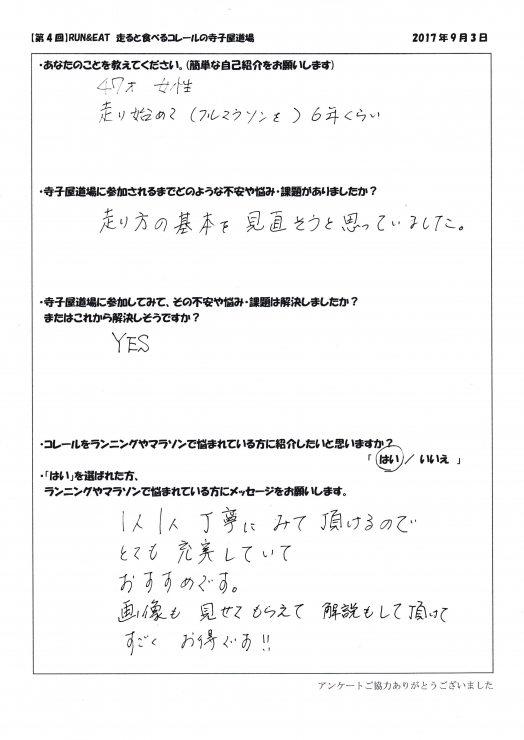 【第4回】RUN&EAT 走ると食べるコレールの寺子屋道場 2017年9月3日
・あなたのことを教えてください。(簡単な自己紹介をお願いします)
47才 女性
走り始めて (フルマラソンを) 6年くらい
・寺子屋道場に参加されるまでどのような不安や悩み・課題がありましたか?
走り方の基本を 見直そうと思っていました。
・寺子屋道場に参加してみて、その不安や悩み・課題は解決しましたか?
またはこれから解決しそうですか?
YES
・コレールをランニングやマラソンで悩まれている方に紹介したいと思いますか?
「 はい / いいえ 」
・「はい」を選ばれた方、
ランニングやマラソンで悩まれている方にメッセージをお願いします。
1人1人 丁寧に みて 頂けるので
とても 充実していて
おすすめです。
画像も 見せてもらえて 解説もして頂けて
すごく お得です!!
アンケートご協力ありがとうございました